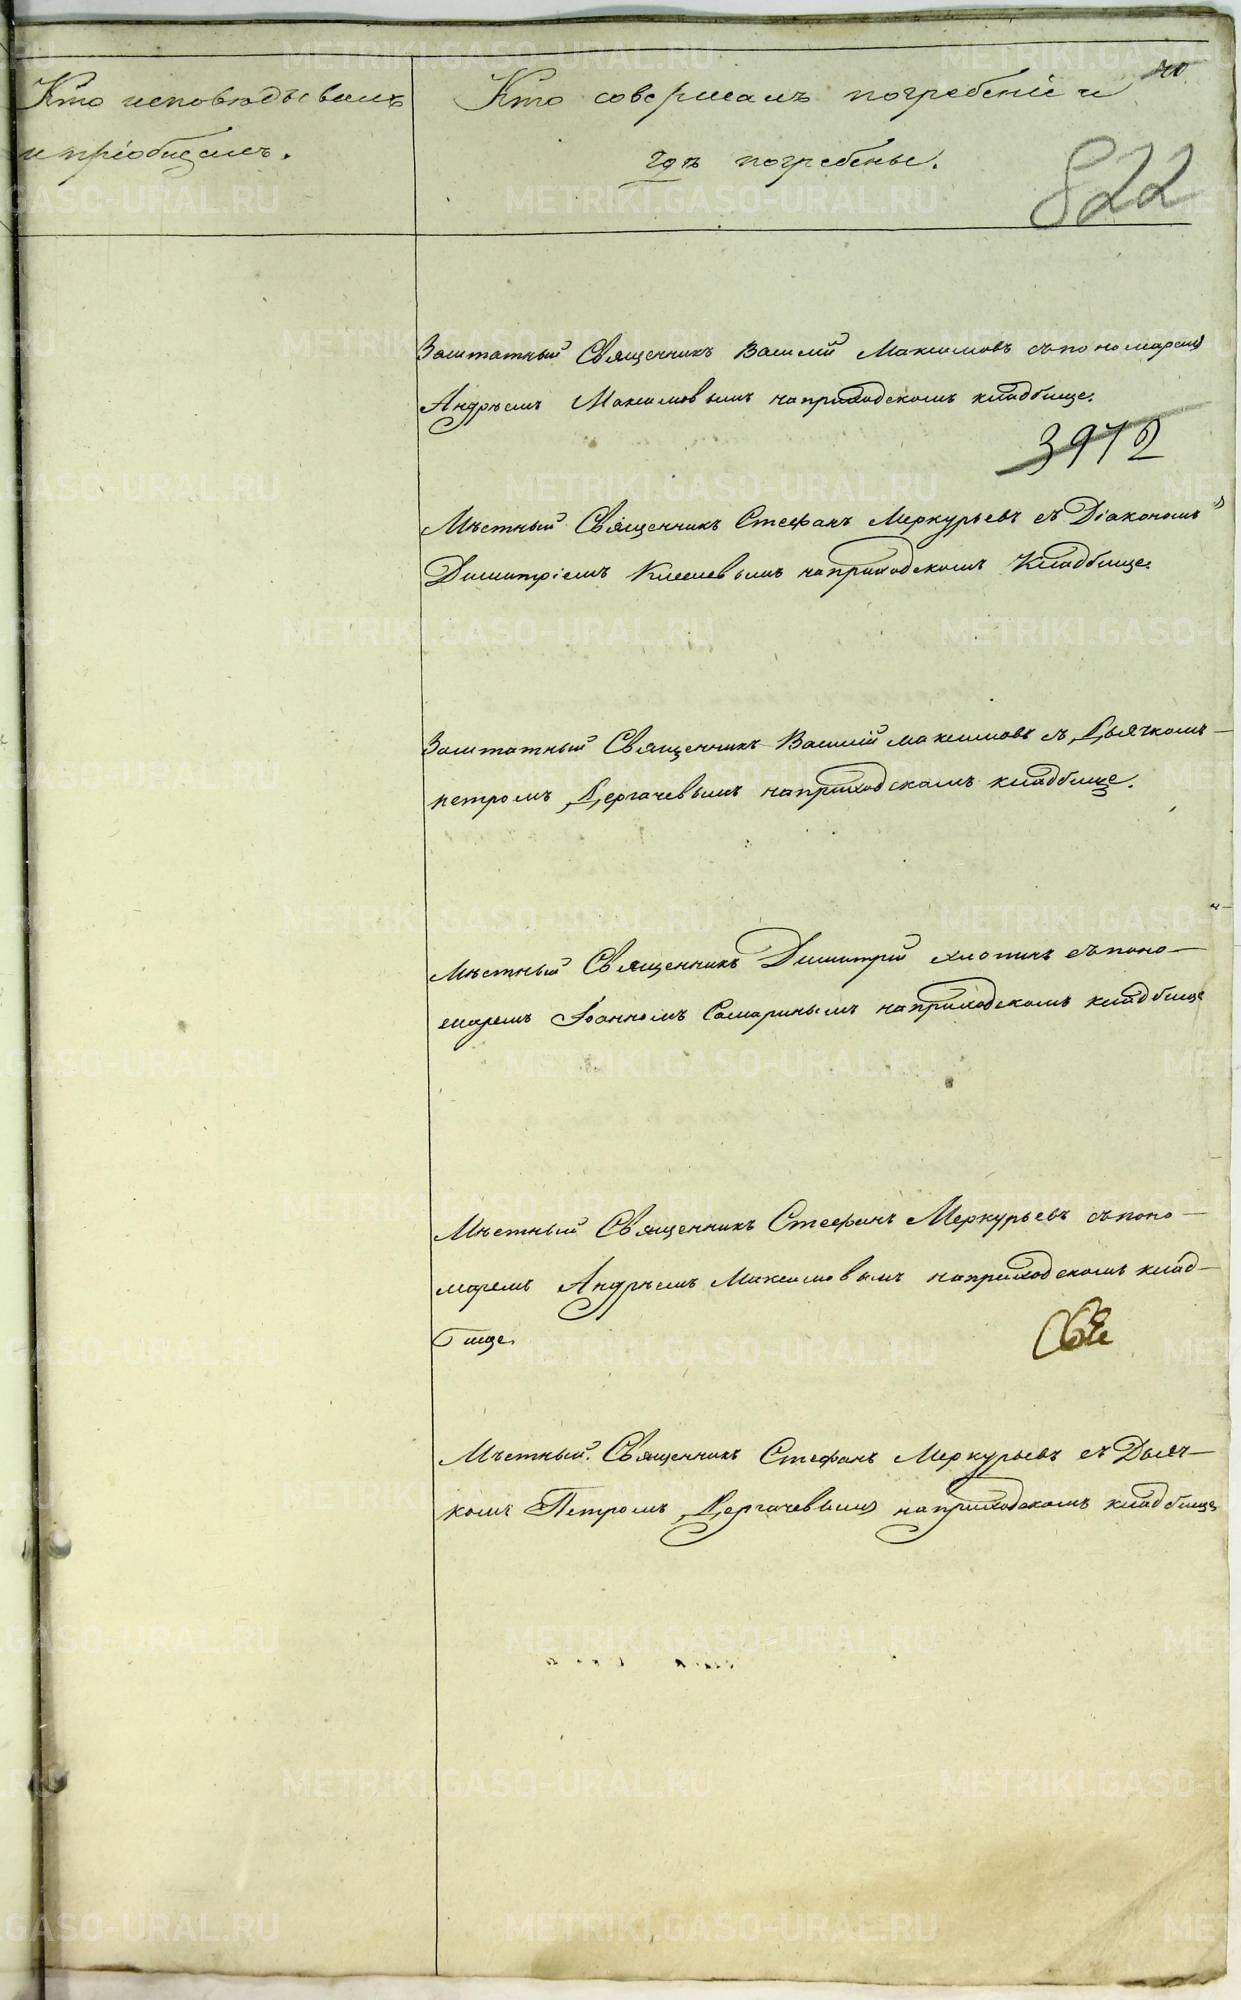 40
Кто исповѣдывалъ
и пріобщалъ.
Кто совершалъ погребеніе и
гдѣ погребены.
822
Заштатный Священникъ Василій Максимовъ съ пономаремъ
Андрѣемъ Максимовымъ на приходскомъ кладбище.
3972
Мѣстный Священникъ Стефанъ Меркурьевъ съ Діакономъ
Димитріемъ на приходскомъ Кладбище.
Заштатный Священникъ Василій Максимовъ съ Дьячкомъ
петромъ Дергачевымъ на приходскомъ кладбище.
Мѣстный Священникъ Димитрій съ поно-
маремъ Іоанномъ Самаринымъ на приходскомъ кладбище
Мѣстный Священникъ Стефанъ Меркурьевъ съ поно-
маремъ Андрѣемъ Максимовымъ на приходскомъ клад-
бище.
Мѣстный Священникъ Стефанъ Меркурьевъ съ Дьяч-
комъ Петромъ Дергачевымъ на приходскомъ кладбище
METRIKI.GASO-URAL.RU